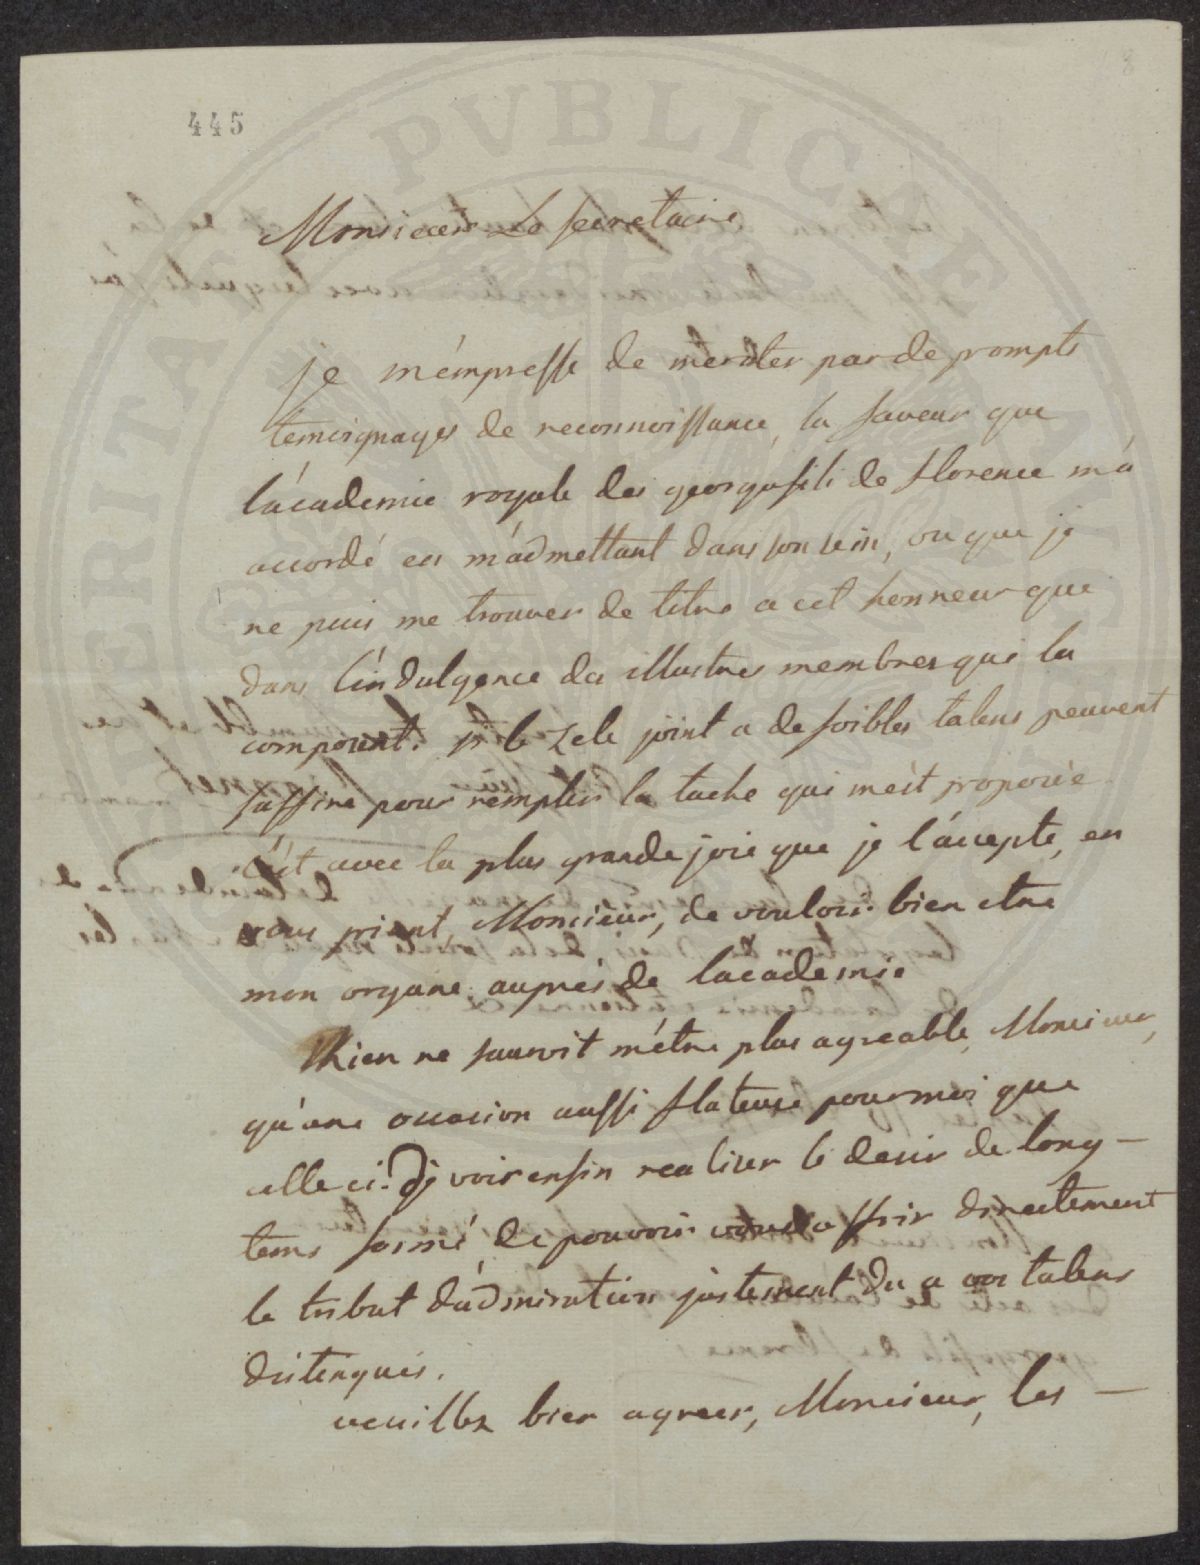 445
Monsieur Le secretaire
je m'empresse de meriter par de prompts
temoignages de reconnoissance, la faveur que
l'académie royale des georgofili de florence m'a
accordé en m'admettant dans son sein, ou que je
ne puis me trouver de titre a cet honneur que
dans l'indulgence des illustres membres qui la
composent. si le zele joint a de foibles talens peuvent
suffire pour remplir la tache qui m'est proposée
c'est avec la plus grande joie que je l'accepte, en
vous priant, Monsieur, de vouloir bien etre
mon organe auprès de lacademie
Rien ne sauroit m'être plus agreable, Monsieur,
qu'une occasion aussi flateuse pour moi que
celle ci. je vois enfin realiser le desir de long-
tems formé de pouvoir vous offrir directement
le tribut d'admiration justement du a vos talens
distingués.
veuillez bien agreer, Monsieur, les -